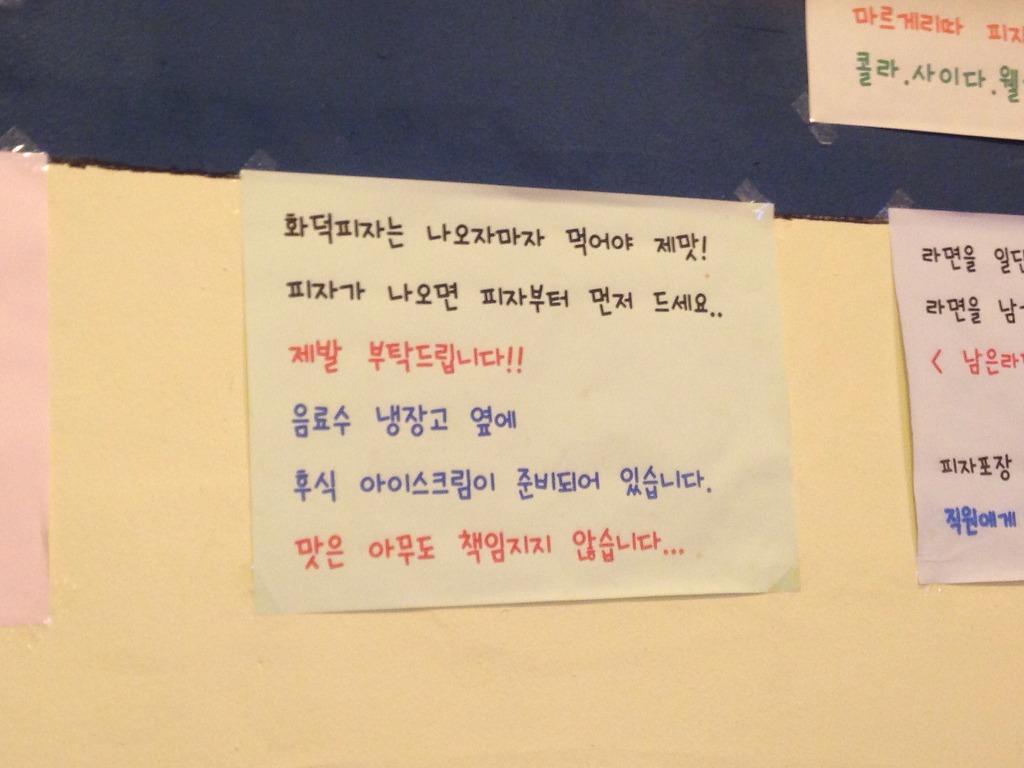 마르게리따 피자
콜라.사이다.웰
화덕피자는 나오자마자 먹어야 제맛!
피자가 나오면 피자부터 먼저 드세요..
제발 부탁드립니다!!
음료수 냉장고 옆에
후식 아이스크림이 준비되어 있습니다.
맛은 아무도 책임지지 않습니다...
라면을 일단
라면을 남
< 남은라면
피자포장
직원에게